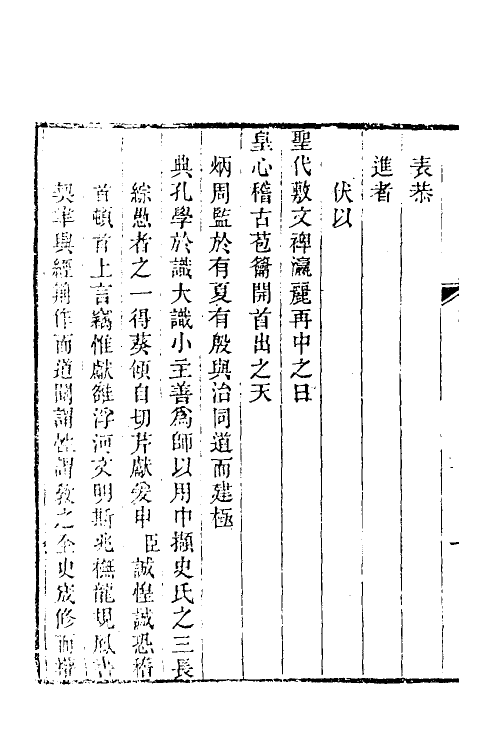 表恭
進者
伏以
聖代敷文禆瀛麗再中之日
皇心稽古苞籥開首出之天
炳周監於有夏有殷與治同道而建極
典孔學於識大識小主善爲師以用中擷史氏之三長
綜愚者之一得葵傾自切芹獻爰申臣誠惶誠恐稽
首頓首上言竊惟獻雒浮河文明斯兆橅龍規鳳書
契聿興經剏作而道闡謂性謂敎之全史成修而